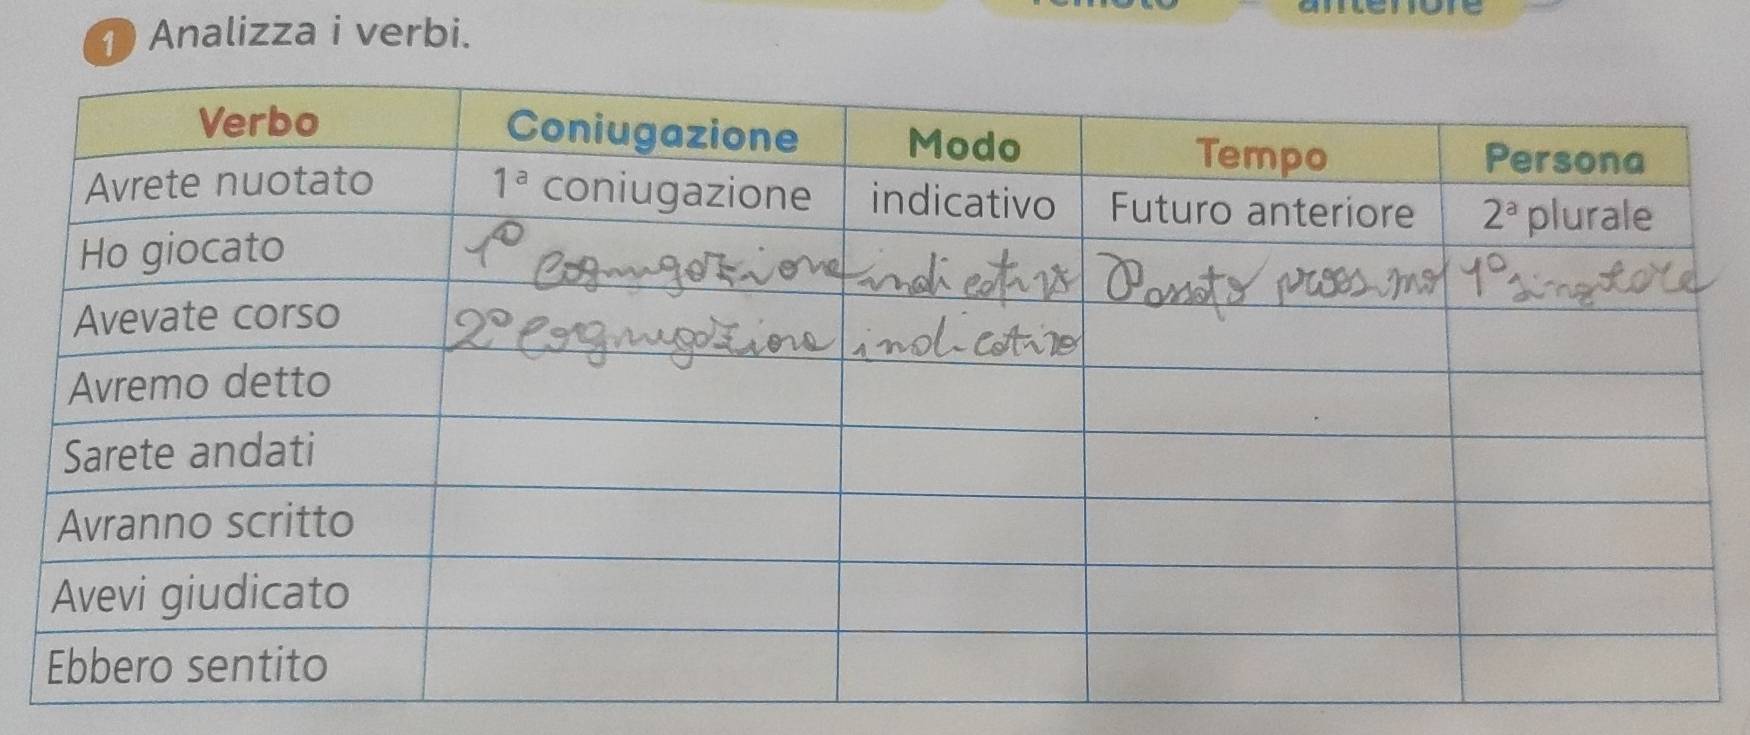 anteriore
1 Analizza i verbi.
Verbo Coniugazione Modo Tempo Persona
Avrete nuotato 1ª coniugazione indicativo Futuro anteriore 2ª plurale
Ho giocato 1° cognugazione indicativo Passato prossimo 1° singolare
Avevate corso 2° cognugazione indicativo
Avremo detto
Sarete andati
Avranno scritto
Avevi giudicato
Ebbero sentito